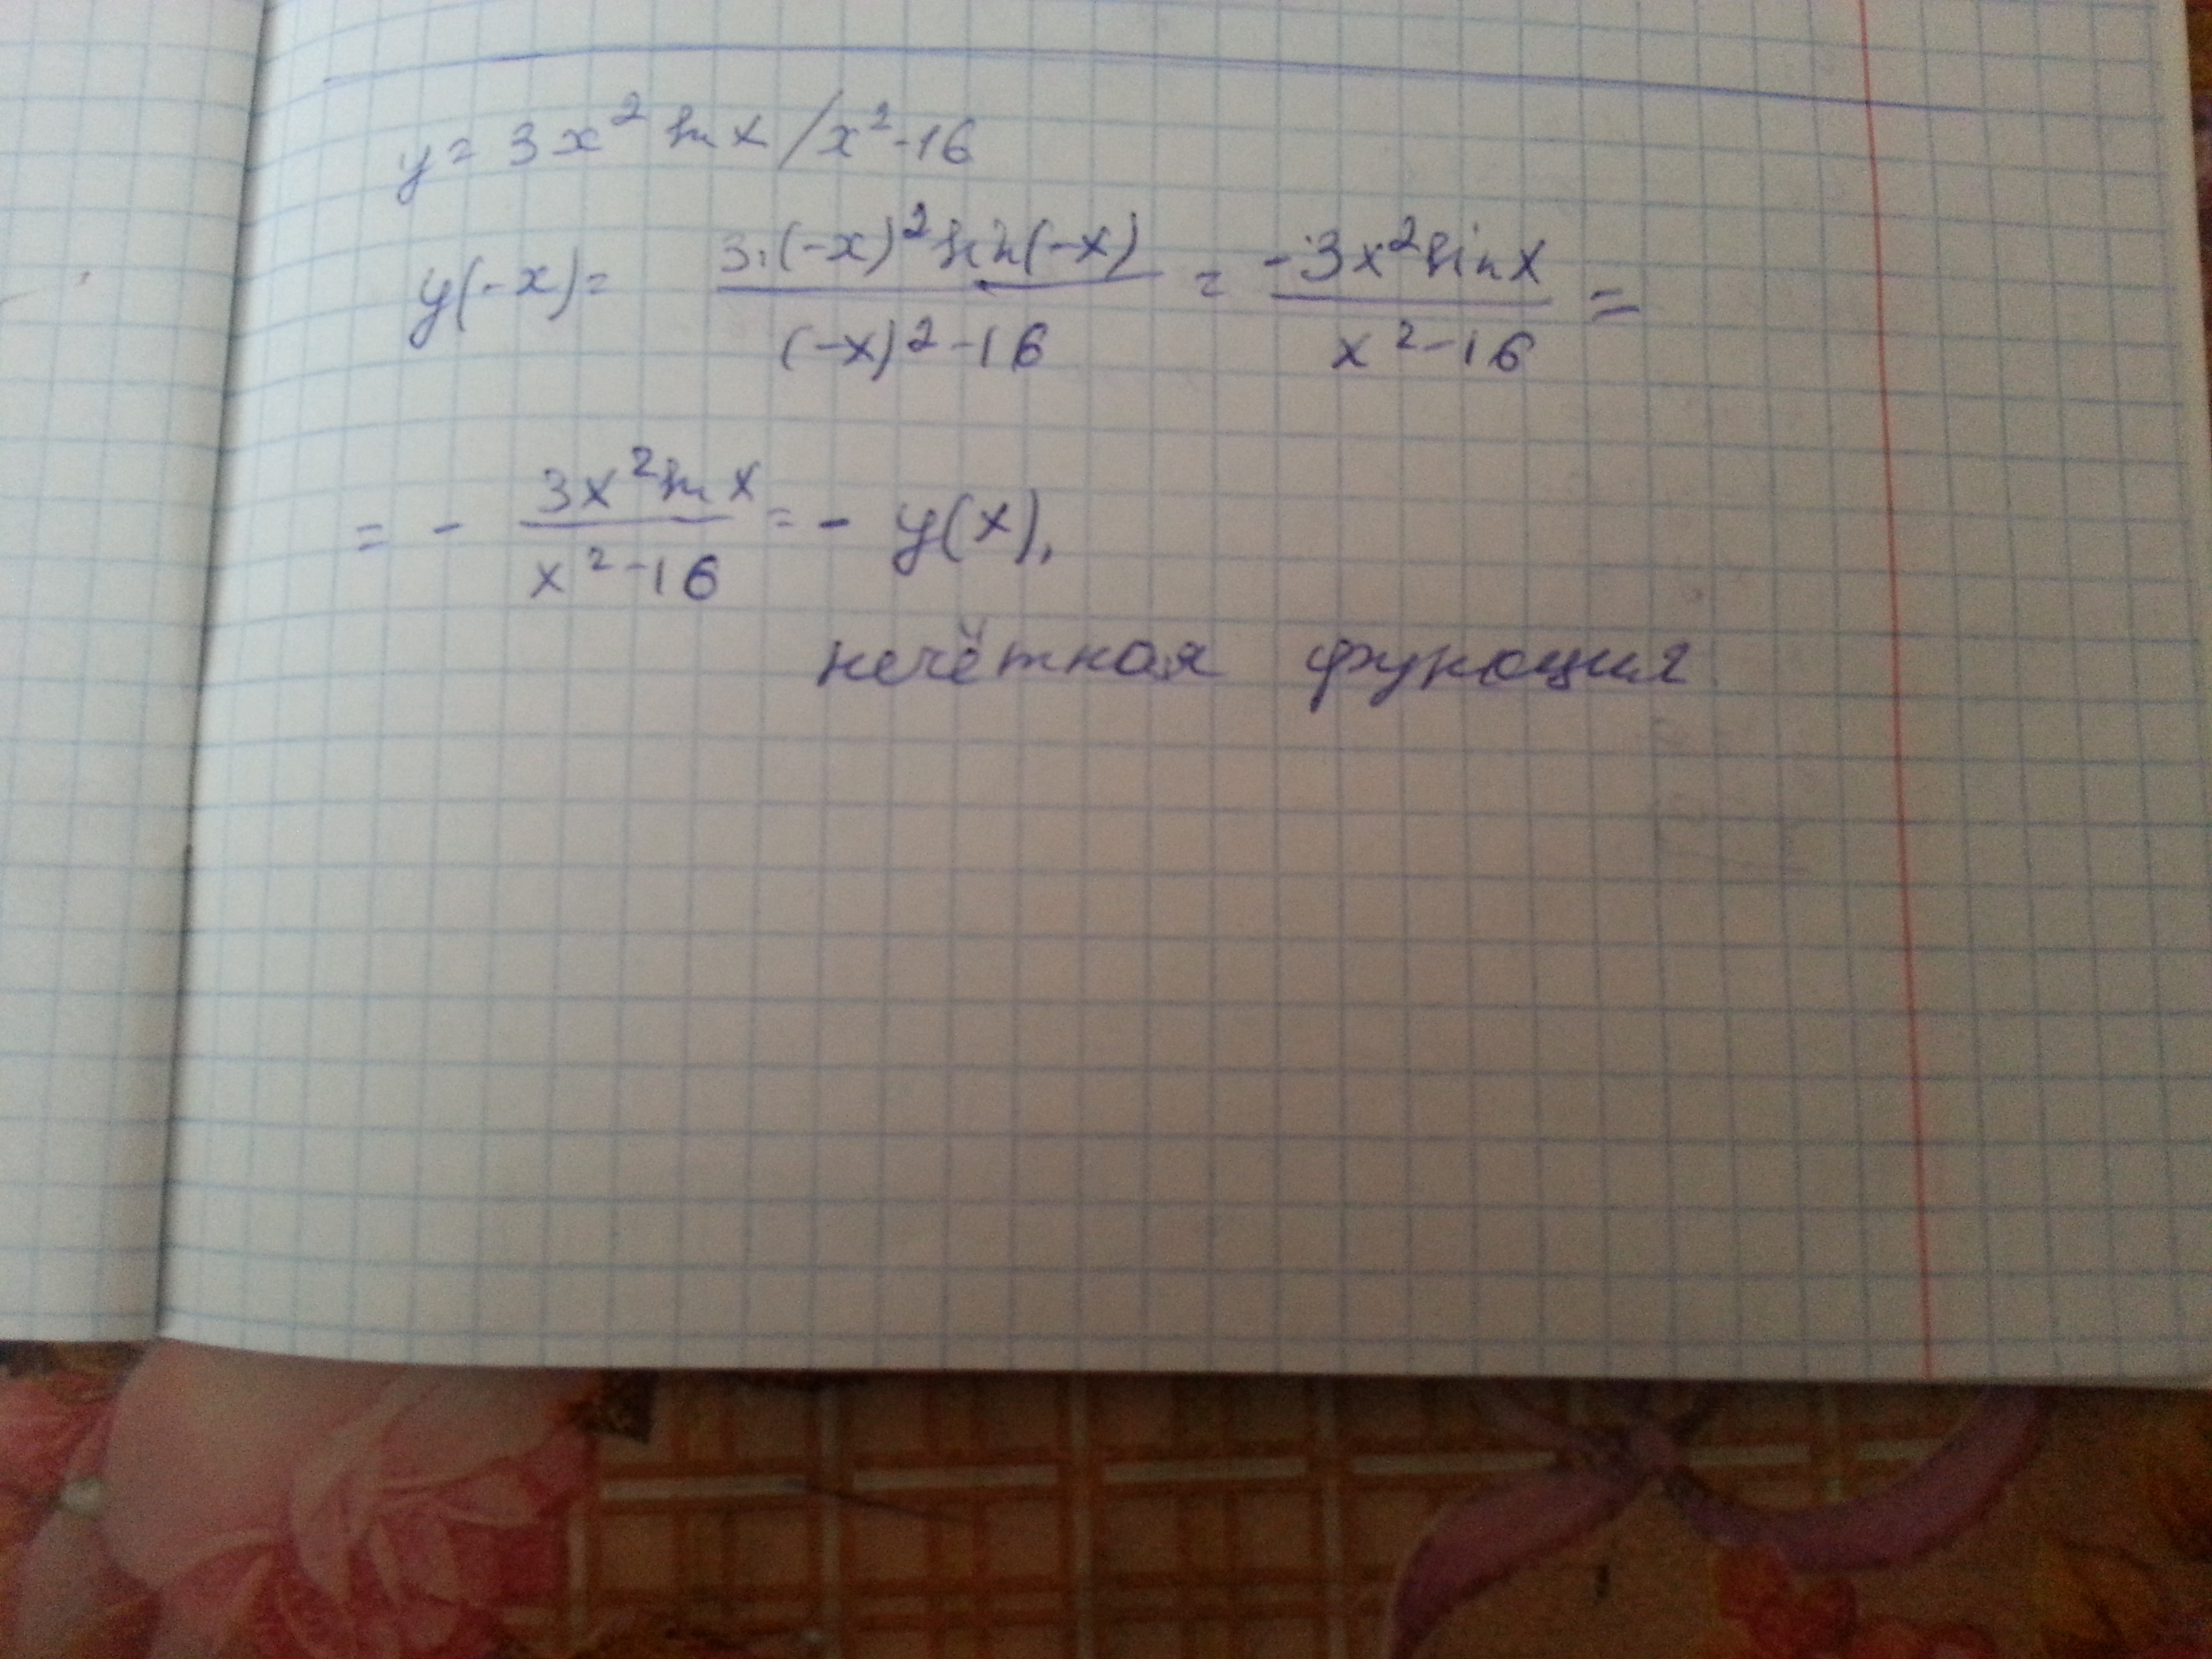 y = 3x² sin x / x² - 16
y(-x) = 3·(-x)² sin(-x) / (-x)² - 16 = -3x² sin x / x² - 16 =
= - 3x² sin x / x² - 16 = - y(x),
нечётная функция